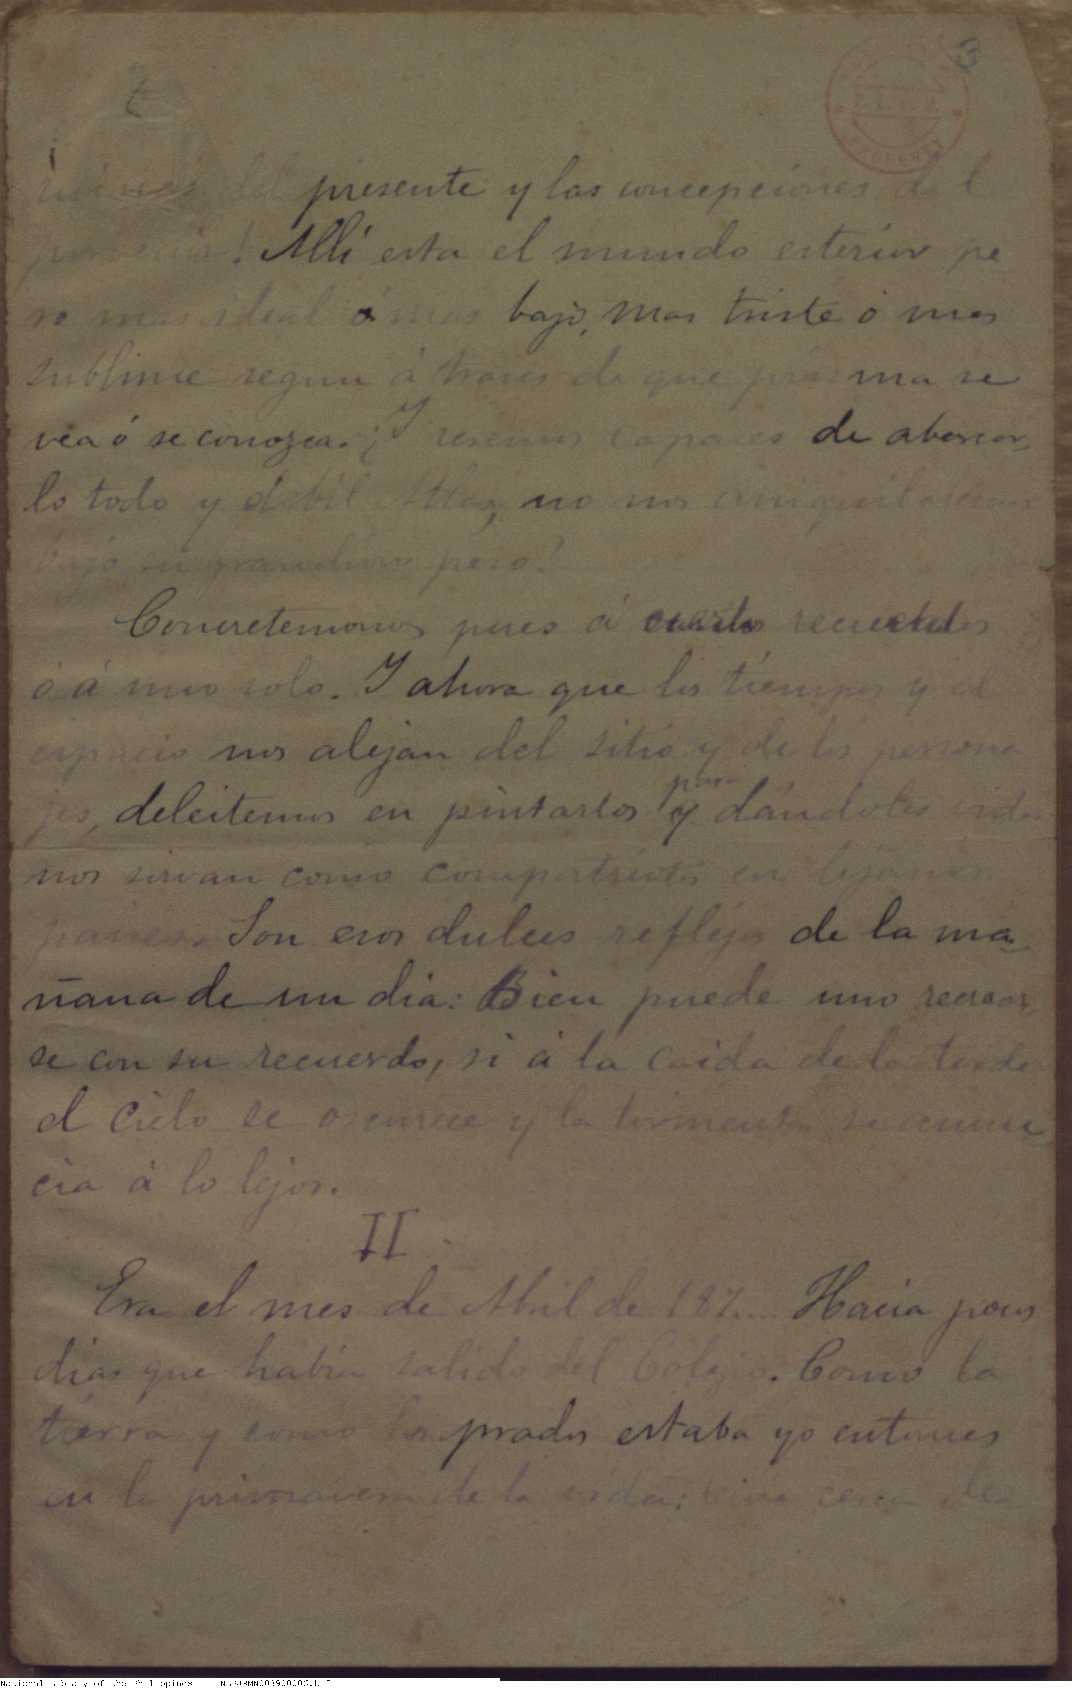 3
del presente y las concepciones del
porvenir! Allí esta el mundo esterior pe
ro mas ideal ó mas bajo, mas triste ó mas
sublime segun á traves de que prisma se
vea ó se conozca. ¿Y seremos capaces de abarcar-
lo todo y débil Atlas, no nos aniquilaremos
bajo su grandioso peso?
Concretemonos pues á ciertos recuerdos
ó á uno solo. Y ahora que los tiempos y el
espacio nos alejan del sitio y de los persona
jes, deleitemos en pintarlos y para dándoles vida
nos sirvan como compatriotas en lejanos
paises. Son esos dulces reflejos de la ma-
ñana de un dia: Bien puede uno recrear-
se con su recuerdo, si á la caida de la tarde
el cielo se oscurece y la tormenta se anun
cia á lo lejos.
II
Era el mes de Abril de 187.... Hacia pocos
dias que habia salido del Colegio. Como la
tierra y como los prados estaba yo entonces
en la primavera de la vida:
National Library of the Philippines